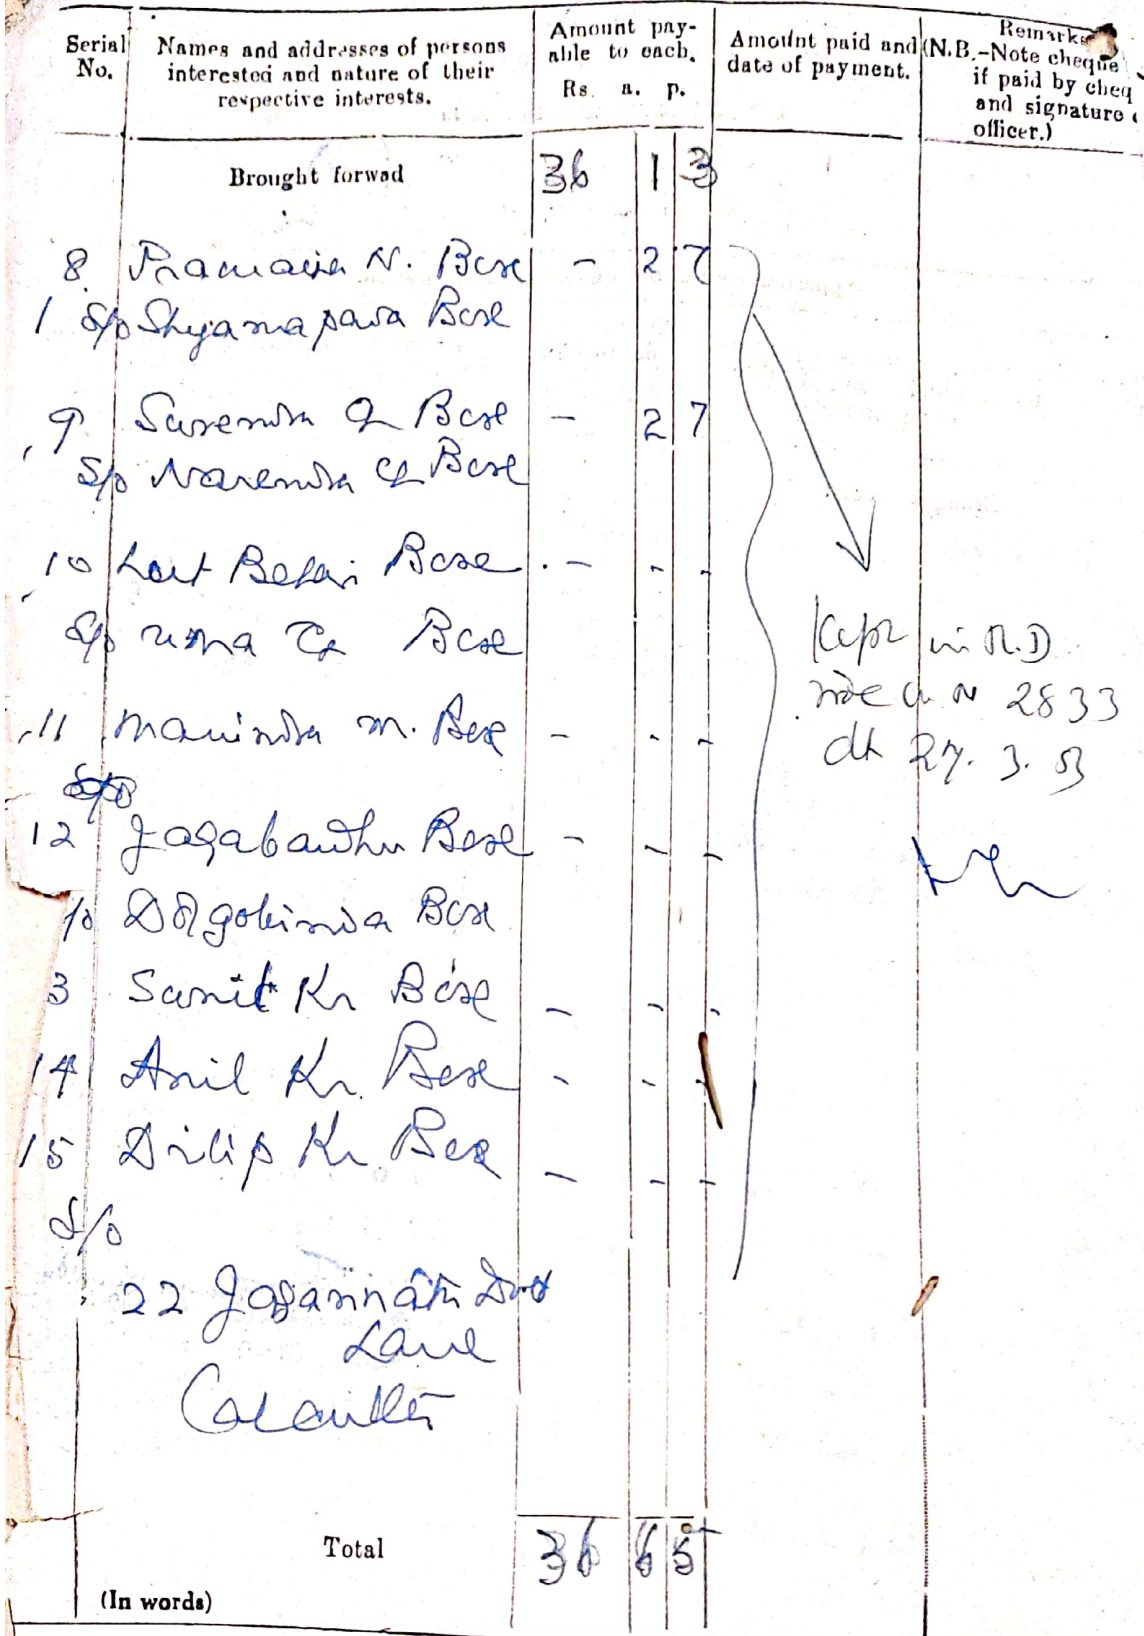 Serial No.
Names and addresses of persons interested and nature of their respective interests.
Amount payable to each.
Rs. a. p.
Amount paid and date of payment.
Remarks
(N.B.-Note cheque
if paid by cheq
and signature
officer.)
Brought forwad 36 1 3
8 N. Bose - 2 7
1 S/o Shyamapada Bose
9 Surendra Ch Bose - 2 7
S/o Narendra Ch Bose
10 Lart Behari Bose - - -
S/o Uma Ch Bose
11 Manindra M. Bose - - -
12 Jagabandhu Bose - - -
S/o Bose
3 Sunil Kr Bose - - -
14 Anil Kr. Bose - - -
15 Dilip Kr Bose - - -
S/o
22 Jagannath Dutt
Lane
Calcutta
Kept in R.D
vide 2833
dt 27. 3. 53
Total 36 6 5
(In words)